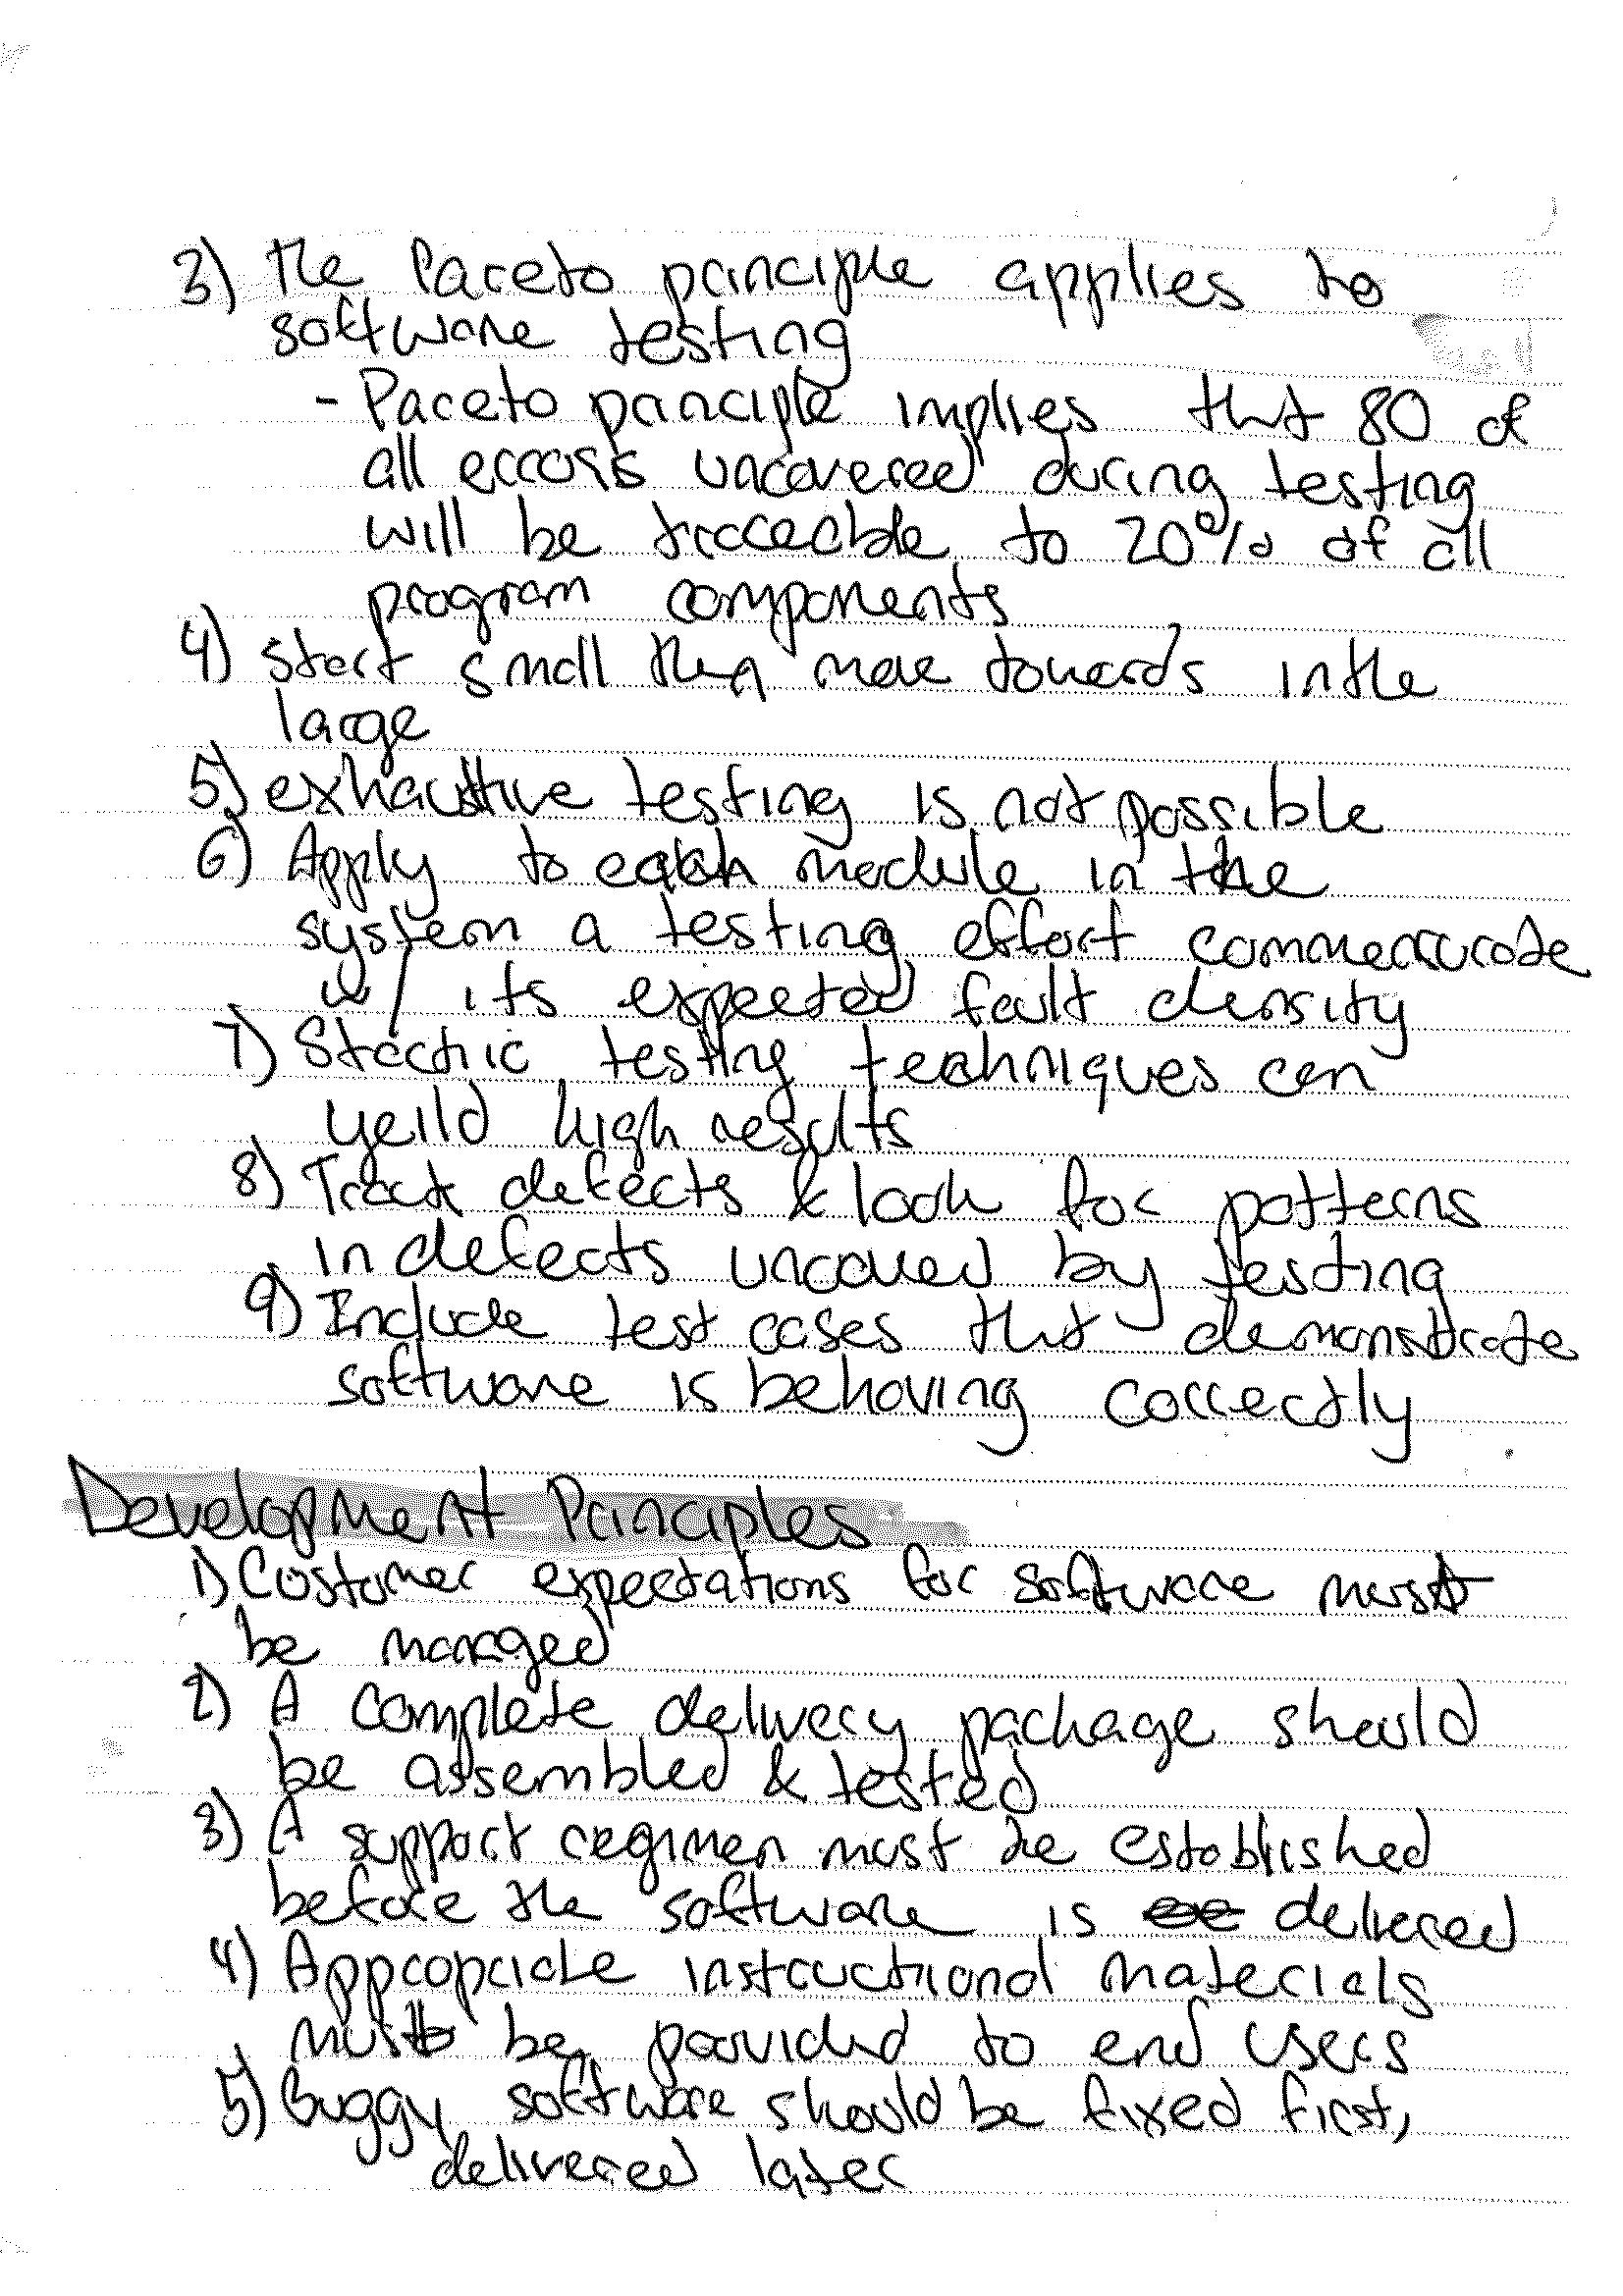 3) The Pareto principle applies to
software testing
- Pareto principle implies tht 80 of
all errors uncovered during testing
will be traceable to 20% of all
program components
4) Start small then move towards in the
large
5) exhaustive testing is not possible
6) Apply to each module in the
system a testing effort commensurate
w/ its expected fault density
7) Static testing techniques can
yeild high results
8) Track defects & look for patterns
in defects uncovered by testing
9) Include test cases tht demonstrate
software is behaving correctly
Development Principles
1) Customer expectations for software must
be managed
2) A complete delivery package should
be assembled & tested
3) A support regimen must be established
before the software is delivered
4) Appropriate instructional materials
must be provided to end users
5) Buggy software should be fixed first,
delivered later